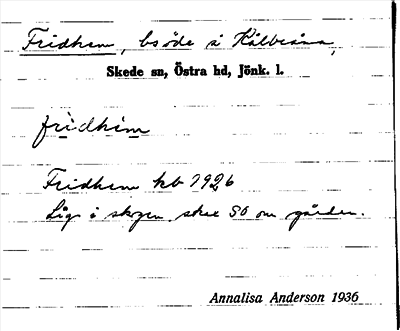 Fridhem, bsöde å Kålbråna,
Skede sn, Östra hd, Jönk. l.
frìdhèm
Fridhem kb 1926
Låg i skogen, strax SO om gården.
Annalisa Anderson 1936